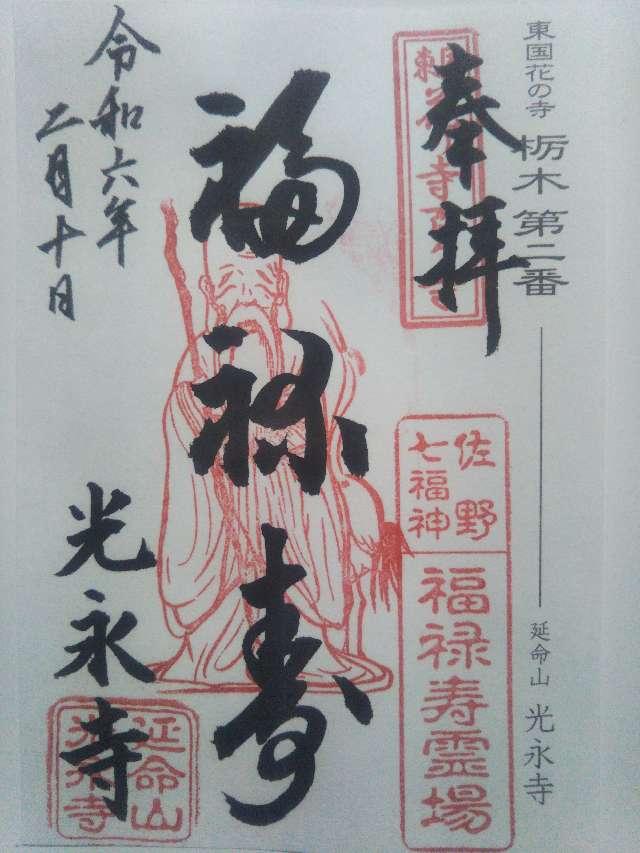 東国花の寺 栃木 第二番
延命山 光永寺
奉拝
佐野
七福神
福禄寿霊場
福禄寿
令和六年
二月十日
光永寺
延命山
光永寺